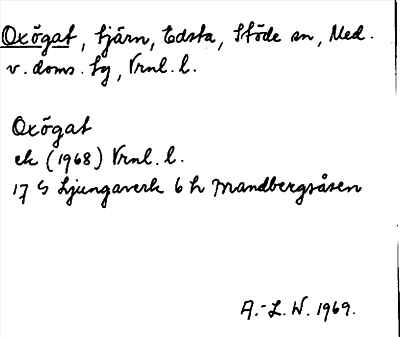 Oxögat, tjärn, Edsta, Stöde sn, Med.
v. doms. tg, Vrnl. l.
Oxögat
ek (1968) Vrnl. l.
17 G Ljungaverk 6 h Mandbergsåsen
A.-L. W. 1969.